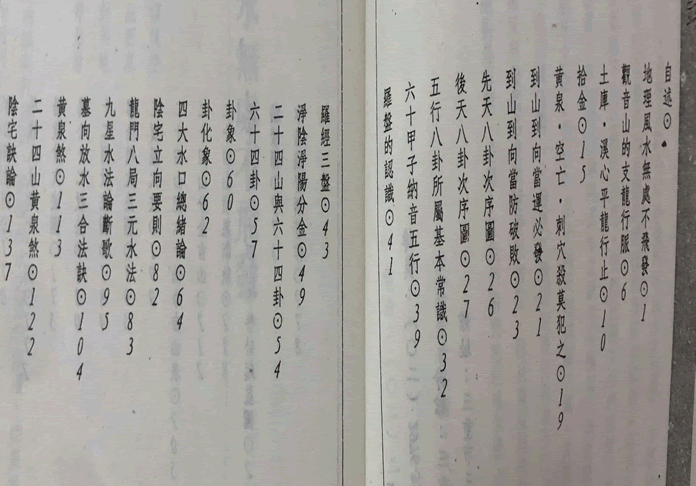 自述⊙
地理風水無處不飛發⊙1
觀音山的支龍行脈⊙6
土庫·溪心平龍行止⊙10
拾金⊙15
黃泉·空亡·刺穴殺莫犯之⊙19
到山到向當運必發⊙21
到山到向當防破敗⊙23
先天八卦次序圖⊙26
後天八卦次序圖⊙27
五行八卦所屬基本常識⊙32
六十甲子納音五行⊙39
羅盤的認識⊙41
羅經三盤⊙43
淨陰淨陽分金⊙49
二十四山與六十四卦⊙54
六十四卦⊙57
卦象⊙60
卦化象⊙62
四大水口總緒論⊙64
陰宅立向要則⊙82
龍門八局三元水法⊙83
九星水法論斷歌⊙95
墓向放水三合法訣⊙104
黃泉煞⊙113
二十四山黃泉煞⊙122
陰宅訣論⊙137